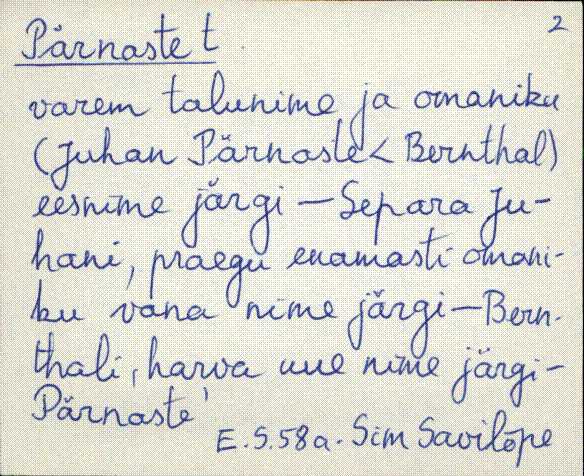 2
Pärnaste t
varem talunime ja omaniku
(Juhan Pärnaste < Bernthal)
eesnime järgi — Separa Ju-
hani, praegu enamasti omani-
ku vana nime järgi — Bern-
thali, harva uue nime järgi -
Pärnaste'
E. S. 58 a. Sim Savilõpe